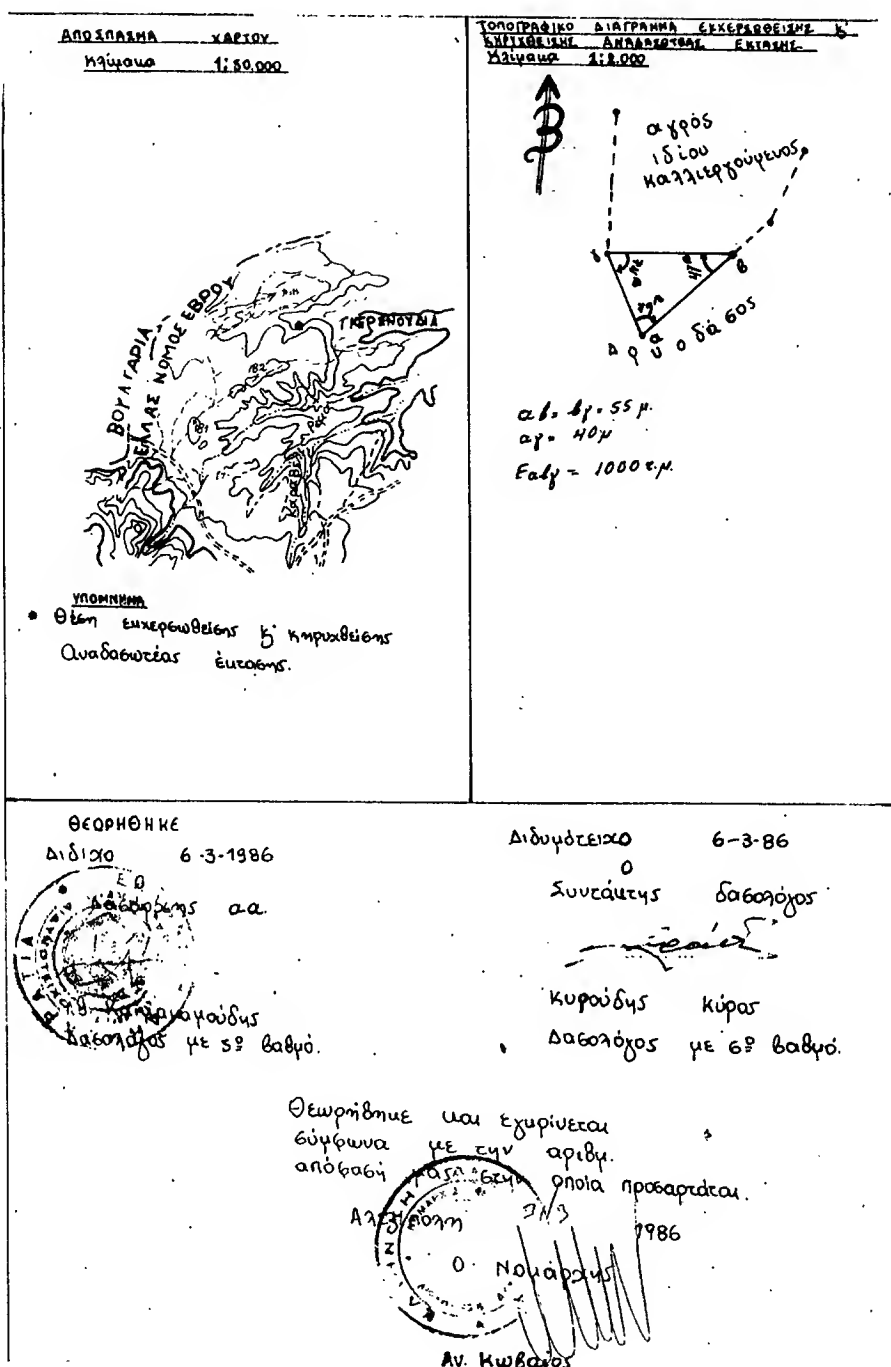 ΑΠΟΣΠΑΣΜΑ ΧΑΡΤΟΥ
Κλίμακα 1:50.000
ΒΟΥΛΓΑΡΙΑ
ΕΛΛΑΣ ΝΟΜΟΣ ΕΒΡΟΥ
ΓΚΕΡΕΝΟΥΔΙΑ
182
Ρέμα
ΥΠΟΜΝΗΜΑ
Θέση εκχερσωθείσης & κηρυχθείσης
Αναδασωτέας έκτασης.
ΤΟΠΟΓΡΑΦΙΚΟ ΔΙΑΓΡΑΜΜΑ ΕΚΧΕΡΣΩΘΕΙΣΗΣ &
ΚΗΡΥΧΘΕΙΣΗΣ ΑΝΑΔΑΣΩΤΕΑΣ ΕΚΤΑΣΗΣ
Κλίμακα 1:2.000
Β
αγρός
ιδίου
καλλιεργούμενος
γ
β
α
Δημόσιο δάσος
αβ = βγ = 55 μ.
αγ = 40 μ
Εαβγ = 1000 τ.μ.
ΘΕΩΡΗΘΗΚΕ
Διδ/χο 6-3-1986
Ο
Δασάρχης α.α.
Δασολόγος με 5º βαθμό.
Διδυμότειχο 6-3-86
Ο
Συντάκτης δασολόγος
Κυρούδης Κύρος
Δασολόγος με 6º βαθμό.
Θεωρήθηκε και εγκρίνεται
σύμφωνα με την αριθμ.
απόφαση μας στην οποία προσαρτάται.
Αλεξ/πολη 1986
Ο Νομάρχης
Αν. Κωβαίος